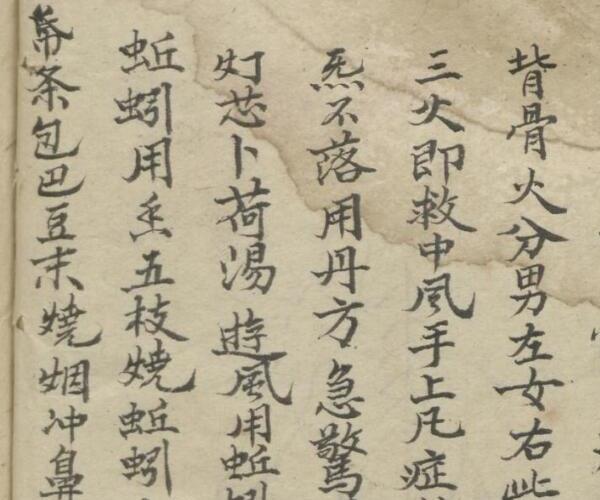 背骨火分男左女右
三火即救中风手上凡症
炁不落用丹方急驚
灯芯卜荷湯遊風用蚯蚓
蚯蚓用五枝燒蚯蚓
条包巴豆末燒烟冲鼻